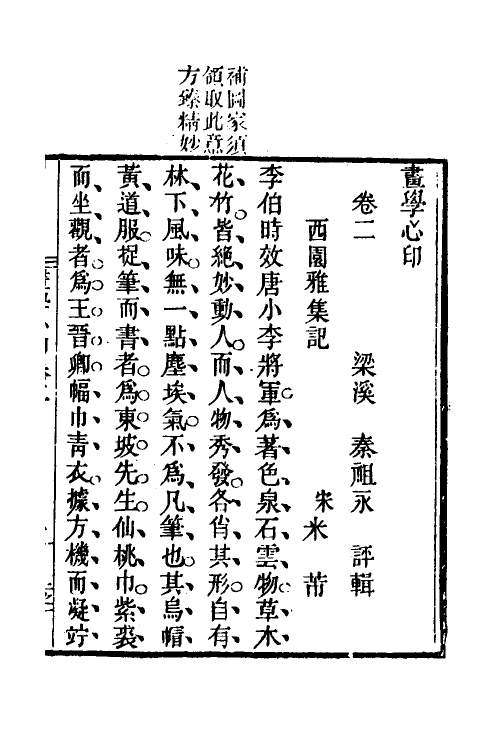 補圖家須
領取此意
方臻精妙
畫學心印
卷二　梁溪　秦祖永　評輯
西園雅集記
宋　米　芾
李伯時效唐小李將軍爲著色泉石雲物草木
花竹皆絕妙動人而人物秀發各肖其形自有
林下風味無一點塵埃氣不爲凡筆也其烏帽
黃道服捉筆而書者爲東坡先生仙桃巾紫裘
而坐觀者爲王晉卿幅巾靑衣據方機而凝竚